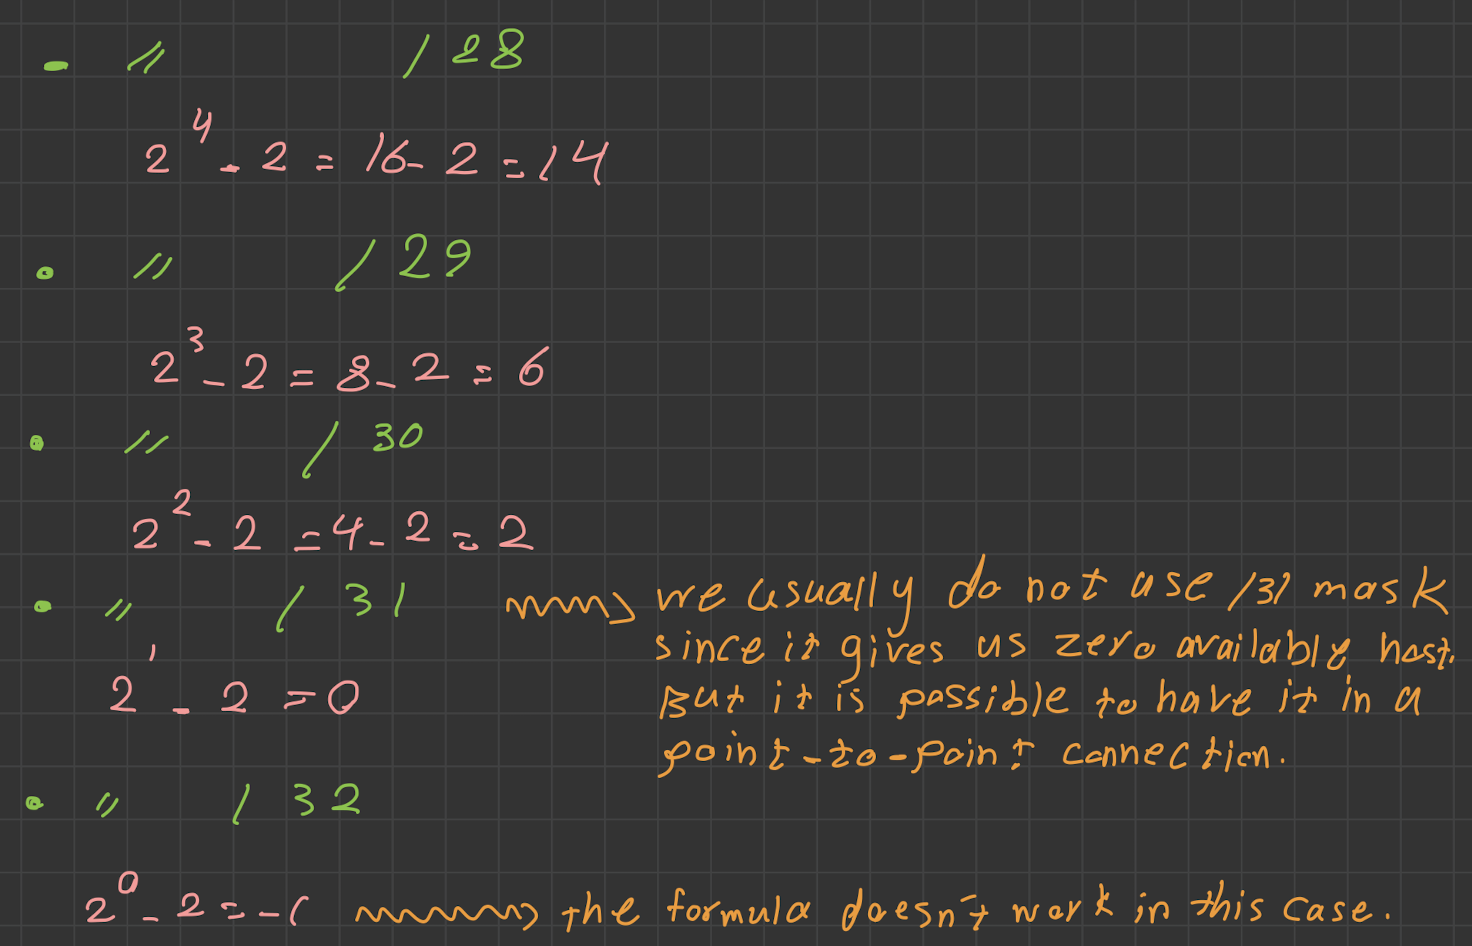 - " /28
2⁴ - 2 = 16 - 2 = 14
• " /29
2³ - 2 = 8 - 2 = 6
• " /30
2² - 2 = 4 - 2 = 2
• " /31 → we usually do not use /31 mask
since it gives us zero available host.
But it is possible to have it in a
point-to-point connection.
2¹ - 2 = 0
• " /32
2⁰ - 2 = -1 → the formula doesn't work in this case.